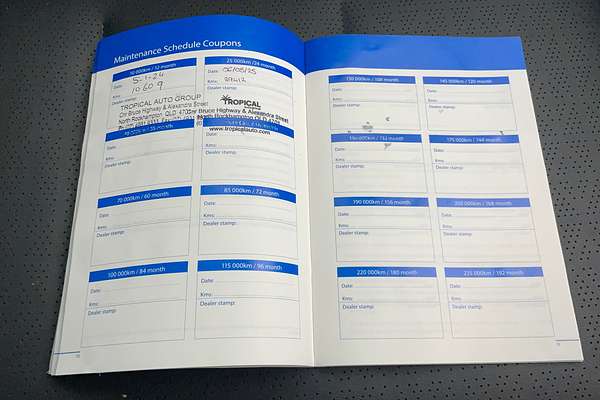 Maintenance Schedule Coupons
10 000km / 12 month
Date: 5-1-24
Kms: 10609
Dealer stamp:
TROPICAL AUTO GROUP
Cnr Bruce Highway & Alexandra Street
North Rockhampton QLD 4701
25 000km / 24 month
Date: 06/05/25
Kms:
Dealer stamp:
TROPICAL
Bruce Highway & Alexandra Street
North Rockhampton
www.tropicalauto.com
Date:
Kms:
Dealer stamp:
Date:
Kms:
Dealer stamp:
70 000km / 60 month
Date:
Kms:
Dealer stamp:
85 000km / 72 month
Date:
Kms:
Dealer stamp:
100 000km / 84 month
Date:
Kms:
Dealer stamp:
115 000km / 96 month
Date:
Kms:
Dealer stamp:
130 000km / 108 month
Date:
Kms:
Dealer stamp:
145 000km / 120 month
Date:
Kms:
Dealer stamp:
Date:
Kms:
Dealer stamp:
175 000km / 144 month
Date:
Kms:
Dealer stamp:
190 000km / 156 month
Date:
Kms:
Dealer stamp:
205 000km / 168 month
Date:
Kms:
Dealer stamp:
220 000km / 180 month
Date:
Kms:
Dealer stamp:
235 000km / 192 month
Date:
Kms:
Dealer stamp: